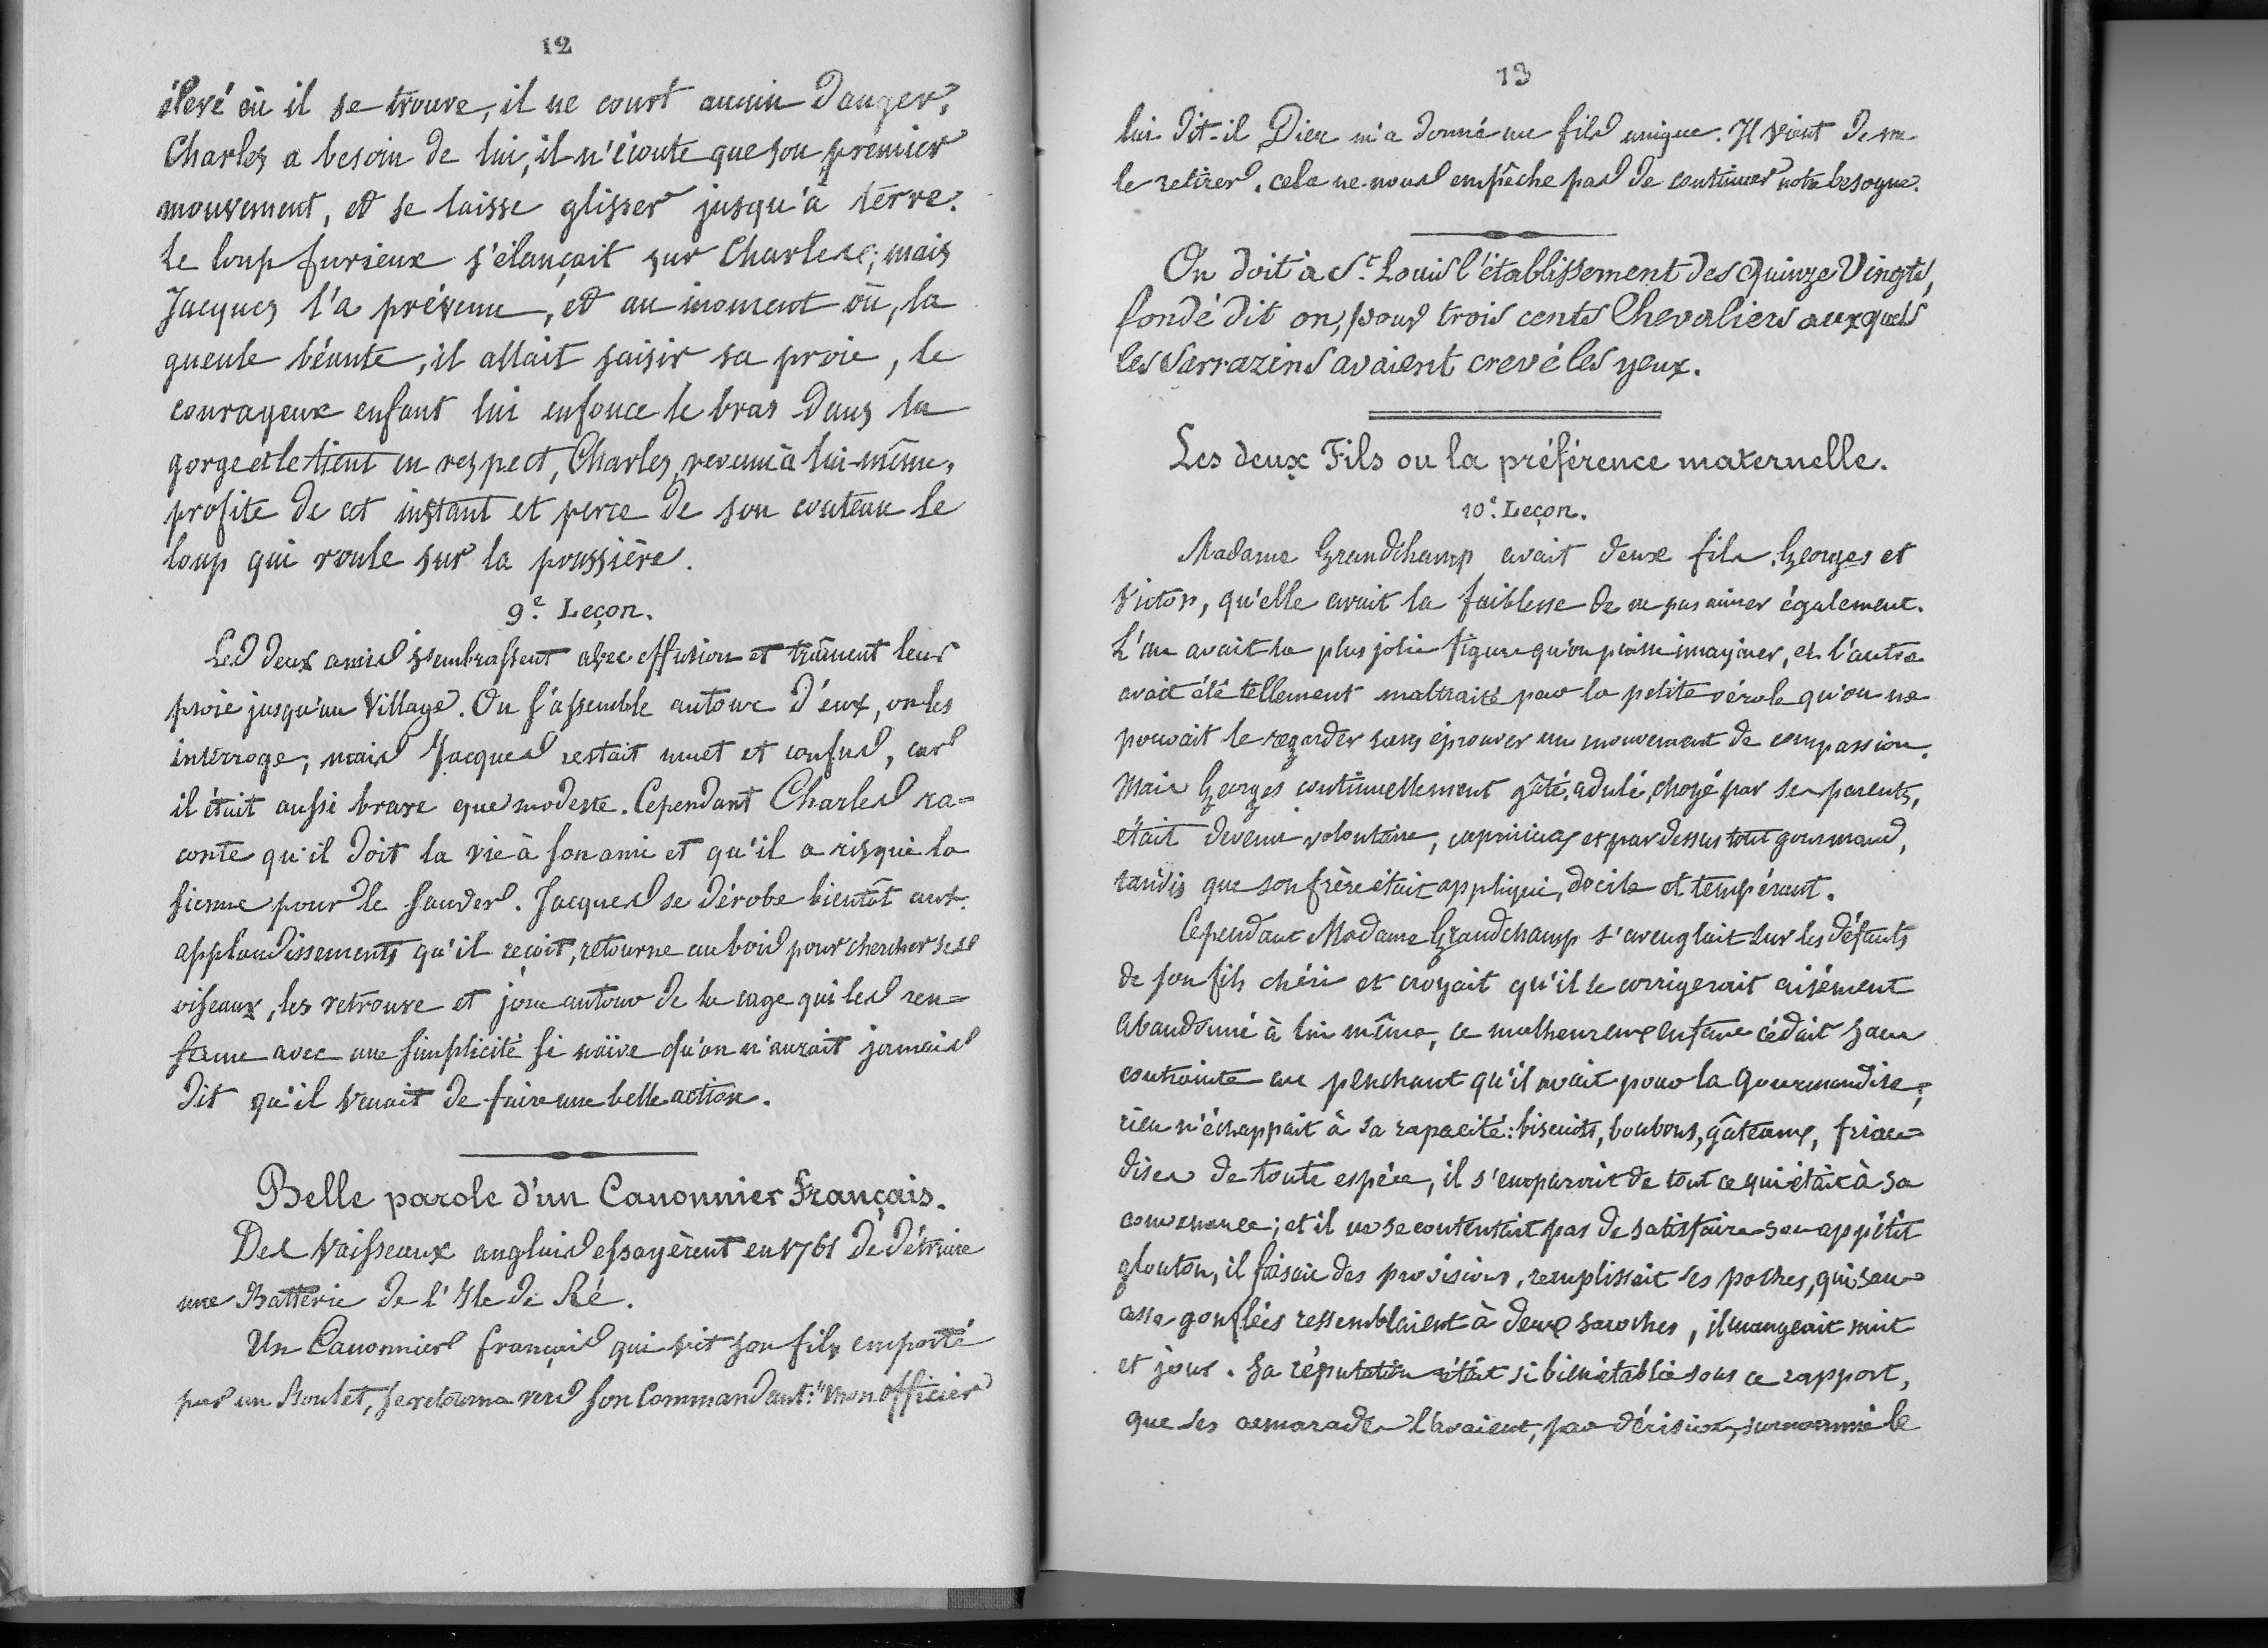 12
élevé où il se trouve, il ne court aucun danger,
Charles a besoin de lui, il n'écoute que son premier
mouvement, et se laisse glisser jusqu'à terre.
Le loup furieux s'élançait sur Charles; mais
Jacques l'a prévenu, et au moment où, la
gueule béante, il allait saisir sa proie, le
courageux enfant lui enfonce le bras dans la
gorge et le tient en respect, Charles, revenu à lui-même,
profite de cet instant et perce de son couteau le
loup qui roule sur la poussière.
9e. Leçon.
Les deux amis s'embrassent avec effusion et traînent leur
proie jusqu'au Village. On s'assemble autour d'eux, on les
interroge, mais Jacques restait muet et confus, car
il était aussi brave que modeste. Cependant Charles ra=
conte qu'il doit la vie à son ami et qu'il a risqué la
sienne pour le sauver. Jacques se dérobe bientôt aux
applaudissements qu'il reçoit, retourne au bois pour chercher ses
oiseaux, les retrouve et joue autour de la cage qui les ren=
ferme avec une simplicité si naïve qu'on n'aurait jamais
dit qu'il venait de faire une belle action.
Belle parole d'un Canonnier Français.
Des Vaisseaux anglais essayèrent en 1761 de détruire
une Batterie de l'Ile de Ré.
Un Canonnier français qui vit son fils emporté
par un Boulet, se retourna vers son Commandant: "Mon officier
13
lui dit-il Dieu m'a donné un fils unique. Il vient de me
le retirer, cela ne nous empêche pas de continuer notre besogne.
On doit à St. Louis l'établissement des Quinze Vingts,
fondé dit on, pour trois cents Chevaliers auxquels
les Sarrazins avaient crevé les yeux.
Les deux Fils ou la préférence maternelle.
10e. Leçon.
Madame Grandchamp avait deux fils, Georges et
Victor, qu'elle avait la faiblesse de ne pas aimer également.
L'un avait la plus jolie figure qu'on puisse imaginer, et l'autre
avait été tellement maltraité par la petite vérole qu'on ne
pouvait le regarder sans éprouver un mouvement de compassion.
Mais Georges continuellement gâté, adulé, choyé par ses parents,
était devenu volontaire, capricieux et par dessus tout gourmand,
tandis que son frère était appliqué, docile et tempérant.
Cependant Madame Grandchamp s'aveuglait sur les défauts
de son fils chéri et croyait qu'il se corrigerait aisément
abandonné à lui même, ce malheureux enfant cédait sans
contrainte au penchant qu'il avait pour la gourmandise;
rien n'échappait à sa rapacité: biscuits, bonbons, gâteaux, frian=
dises de toute espèce, il s'emparait de tout ce qui était à sa
convenance; et il ne se contentait pas de satisfaire son appétit
glouton, il faisait des provisions, remplissait ses poches, qui sans
cesse gonflées ressemblaient à deux sacoches, il mangeait nuit
et jour. Sa réputation était si bien établie sous ce rapport,
que ses camarades l'avaient, par dérision, surnommé le